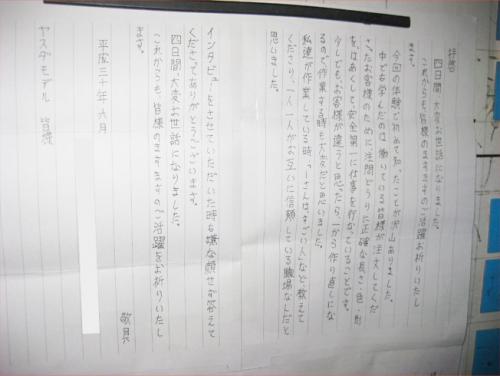 拝啓
四日間、大変お世話になりました。
これからも、皆様のますますのご活躍お祈りいたし
ます。
今回の体験で初めて知ったことが沢山ありました。
中でも学んだのは働いている皆様が注文してくだ
さったお客様のために、どうりに正確な長さ・色・
をはあくして、安全第一に仕事を行なっていることです。
少しでも、お客様が違うと思ったら、一から作り直しにな
るので、作業する時も大変だと思いました。
私達が作業している時、「〜さんはすごい人」など教えて
くださり、一人一人がお互いに信頼している職場なんだと
思いました。
インタビューをさせていただいた時も嫌な顔せず答えて
くださってありがとうございます。
四日間、大変お世話になりました。
これからも、皆様のますますのご活躍をお祈りいたし
ます。
敬具
平成三十年六月
ヤスダモデル 皆様